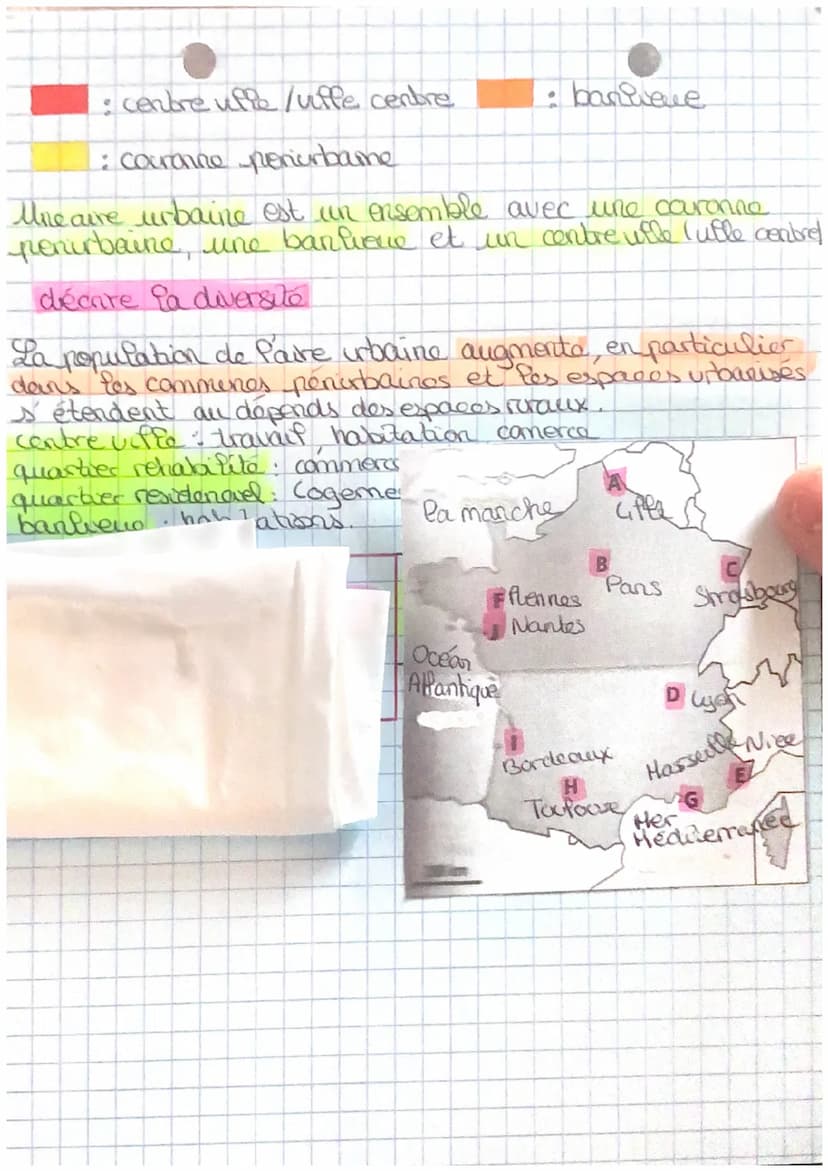 : centre ville /ville centre : banlieue
: couronne periurbaine
Une aire urbaine est un ensemble avec une couronne
periurbaine, une banlieue et un centre ville (ville centre)
décrire la diversité
La population de l'aire urbaine augmente, en particulier
dans les communes périurbaines et les espaces urbanisés
s'étendent au dépends des espaces ruraux.
centre ville : travail, habitation comerce
quartier rehabilité : commerc
quartier residenciel : Logeme
banlieue : habitations.
A
la manche Lille
B C
Paris Strasbourg
F Rennes
J Nantes
Océan
Atlantique
D Lyon
I
Bordeaux Marseille Nice
H E
Toulouse G
Mer
Méditerranée